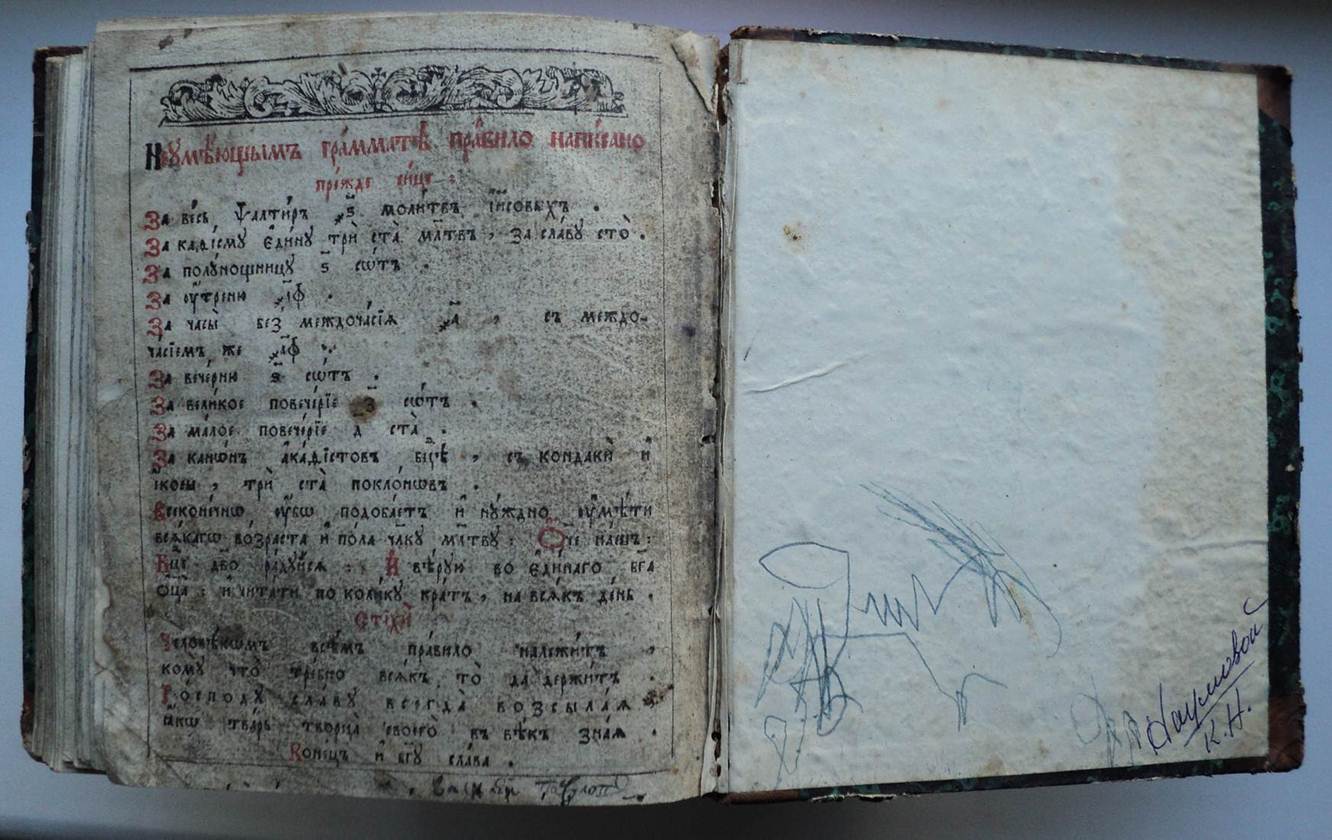 Неумѣ́ющымъ гра́мматѣ пра́вило напи́сано
пре́жде си́це :
За ве́сь ѱалти́рь ҂ѕ҃ моли́твъ і҆исовыхъ .
За каѳі́сму є҆ди́ну трѝ ста̀ мл҃твъ , за сла́ву сто̀ .
За полу́нощницу ѕ҃ сѡ́тъ .
За ᲂу҆́треню ҂а҃ф .
За часы̀ без̾ междоча́сїѧ ҂а҃ , съ междо-
ча́сїемъ же ҂а҃ф .
За вече́рню ѕ҃ сѡ́тъ .
За вели́кое повече́рїе з҃ сѡ́тъ .
За ма́лое повече́рїе д҃ ста̀ .
За канѡ́нъ а҆ка́ѳїстовъ бцⷣѣ , съ кондаки̑ и҆
і҆́косы , трѝ ста̀ покло́нѡвъ .
Всеконе́чнѡ ᲂу҆́бѡ подоба́етъ и҆ ну́ждно ᲂу҆мѣ́ти
всѧ́кагѡ во́зраста и҆ по́ла чл҃ку мл҃тву : Ѻ҆́ч҃е на́шъ :
Бц⁠ⷣе дв҃о ра́дуйсѧ : И҆ вѣ́рую во є҆ди́наго бг҃а
ѻ҆ц҃а̀ : и҆ чита́ти по коли́ку кра́тъ , на всѧ́къ де́нь .
Стїхѝ
Человѣ́кѡмъ всѣ́мъ пра́вило належи́тъ ,
кому̀ что̀ тре́бно всѧ́къ то̀ да держи́тъ .
Го́споду сла́ву всегда̀ возсыла́ѧ
ꙗ҆́кѡ тва́рь творца̀ своего̀ въ вѣ́къ зна́ѧ .
Коне́цъ и҆ бг҃у сла́ва .
Наумовой
К.Н.